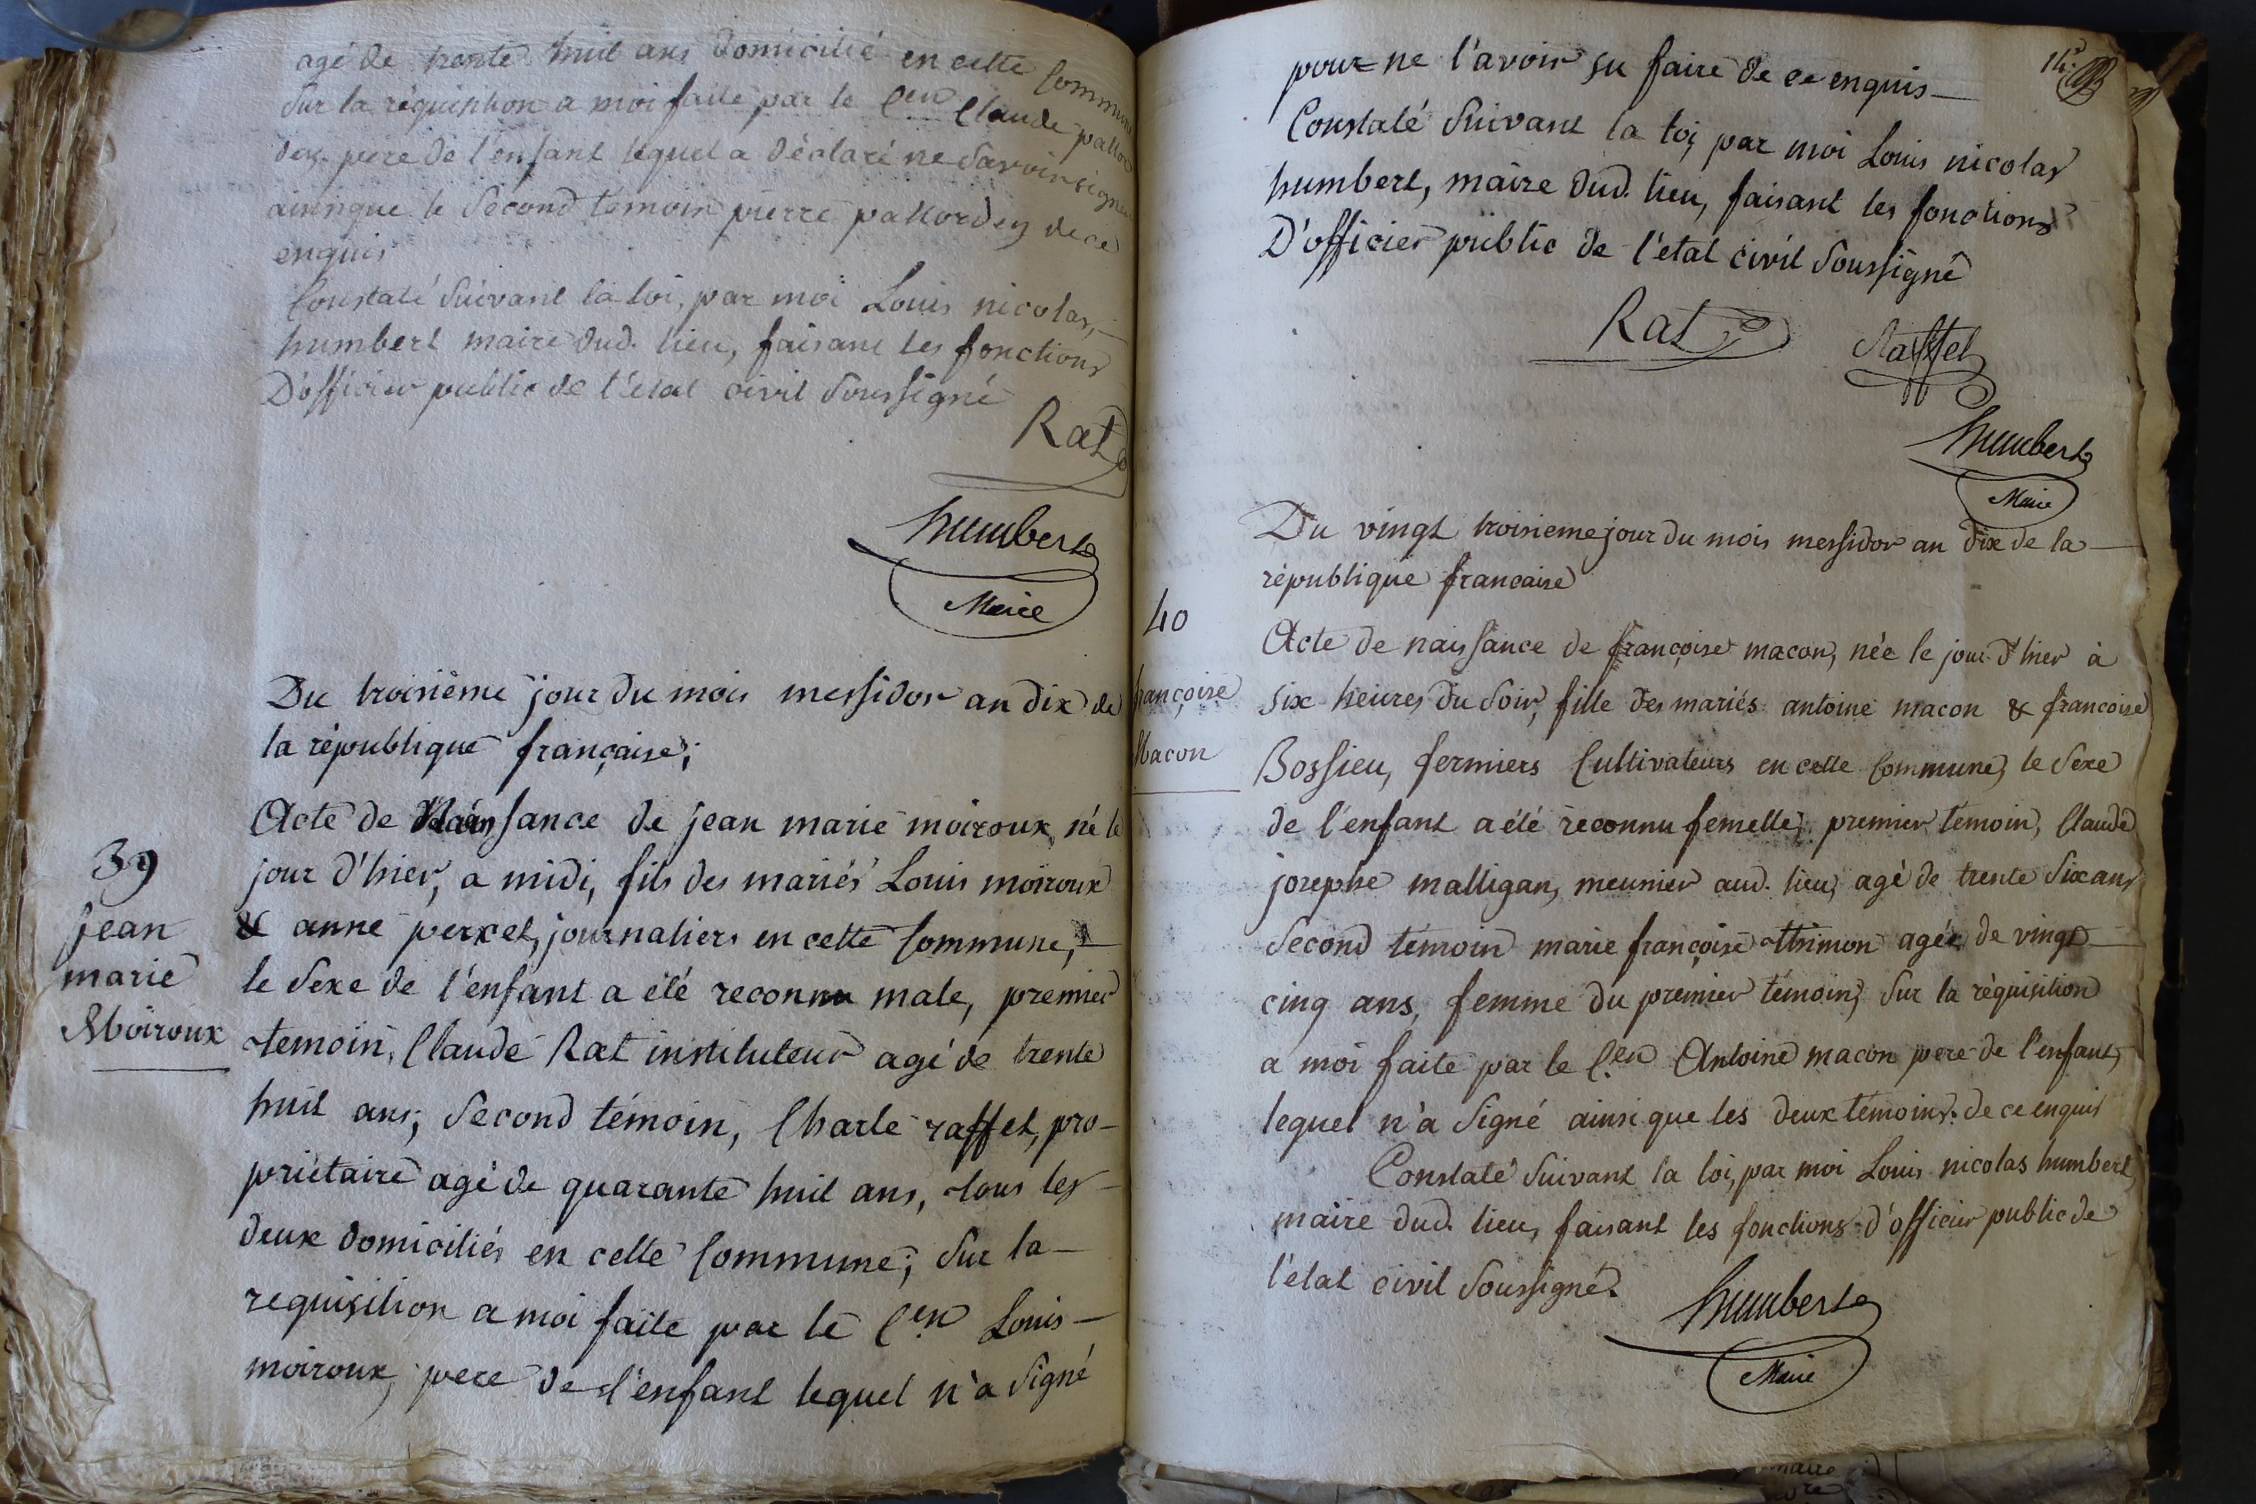 agé de trente huit ans domicilié en cette Commune
Sur la réquisition a moi faite par le C.en Claude
dey. pere de l'enfant lequel a déclaré ne savoir signer
ainsi que le second temoin pierre pakordey de ce
enquis
Constaté suivant la loi, par moi Louis nicolas,
humbert maire dud. lieu, faisant les fonctions
D'officier public de l'état civil soussigné
Rat
humbert
Maire
Du troisième jour du mois messidor an dix de
la république française;
39
Jean
marie
Moiroux
Acte de Naissance de jean marie moiroux, né le
jour d'hier, a midi, fils des mariés Louis moiroux
& anne perxet, journaliers en cette Commune,
le sexe de l'enfant a été reconnu male, premier
temoin, Claude Rat instituteur agé de trente
huit ans, second témoin, Charle raffet, pro-
priétaire agé de quarante huit ans, tous les
deux domiciliés en cette Commune; sur la
requisition a moi faite par le C.en Louis
moiroux, pere de l'enfant lequel n'a signé
14.e
pour ne l'avoir su faire de ce enquis
Constaté suivant la loi, par moi Louis nicolas
humbert, maire dud. lieu, faisant les fonctions
D'officier public de l'etat civil soussigné
Rat
Raffet
humbert
Maire
Du vingt troisieme jour du mois messidor an dix de la
république francaise
40
françoise
Macon
Acte de naissance de françoise macon, née le jour d'hier à
six heures du soir, fille des mariés antoine macon & francoise
Bossieu, fermiers Cultivateurs en cette Commune, le sexe
de l'enfant a été reconnu femelle, premier témoin, Claude
josephe malligan, meunier aud. lieu, agé de trente six ans
second témoin marie françoise thimon agée de vingt
cinq ans, femme du premier témoin, sur la réquisition
a moi faite par le C.en Antoine macon pere de l'enfant,
lequel n'a signé ainsi que les deux témoins. de ce enquis
Constaté suivant la loi, par moi Louis nicolas humbert,
maire dud. lieu, faisant les fonctions d'officier public de
l'etat civil soussigné.
humbert
Maire